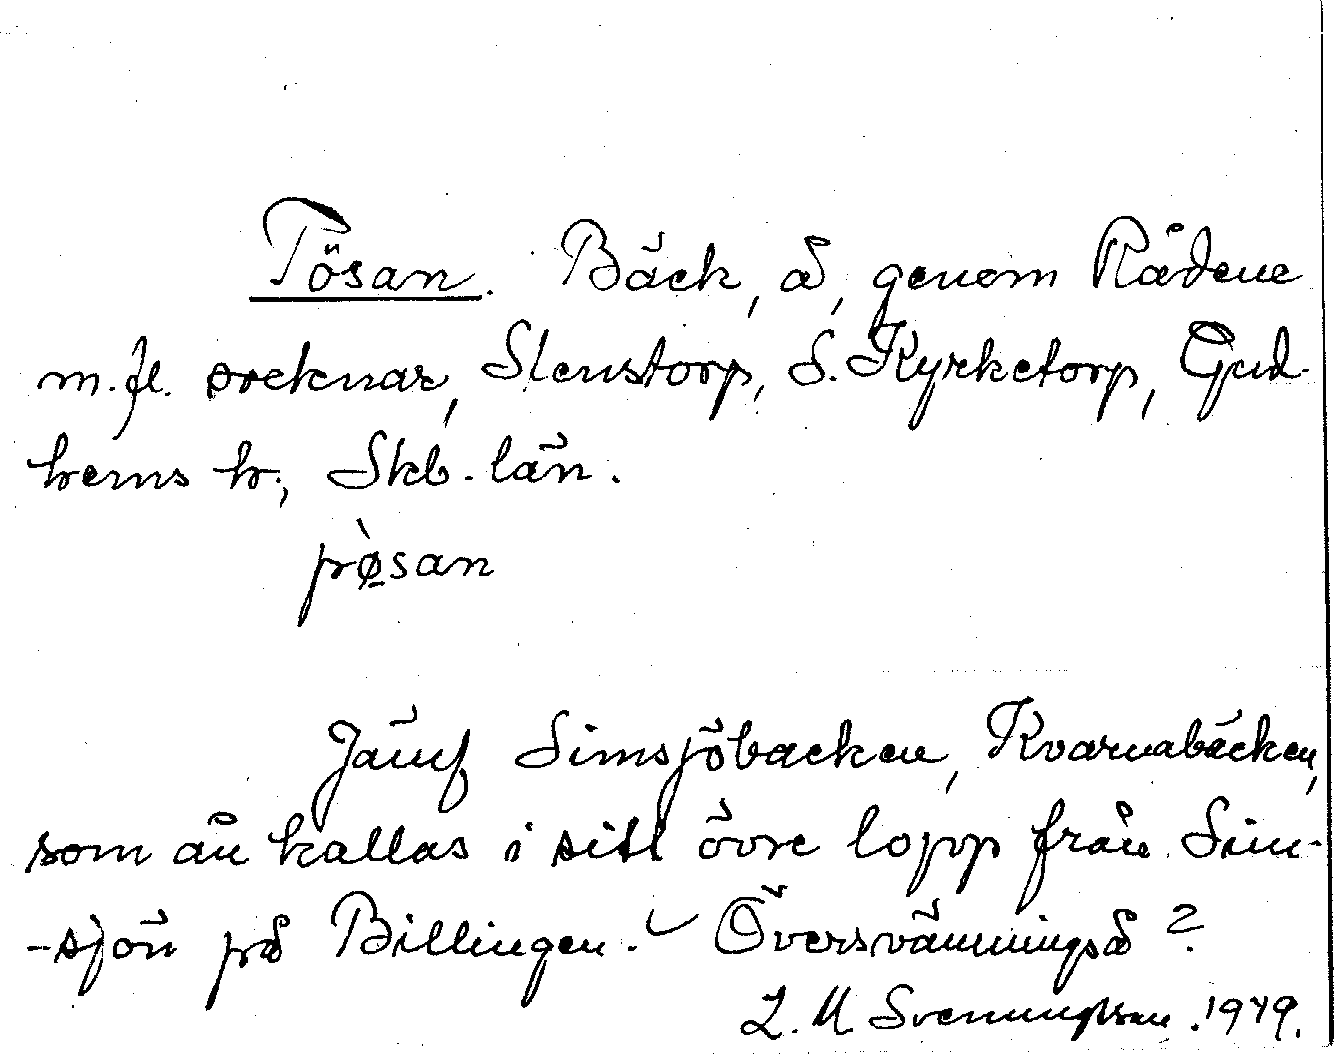 Tösan. Bäck, å, genom Rådene
m.fl. socknar, Stenstorp, S. Kyrketorp, Gud-
hems h., Skb. län.
þø̀san
Jämf Simsjöbäcken, Kvarnabäcken,
som ån kallas i sitt övre lopp från Sim-
-sjön på Billingen. Översvämningså?
L. M Svenungsson. 1949.